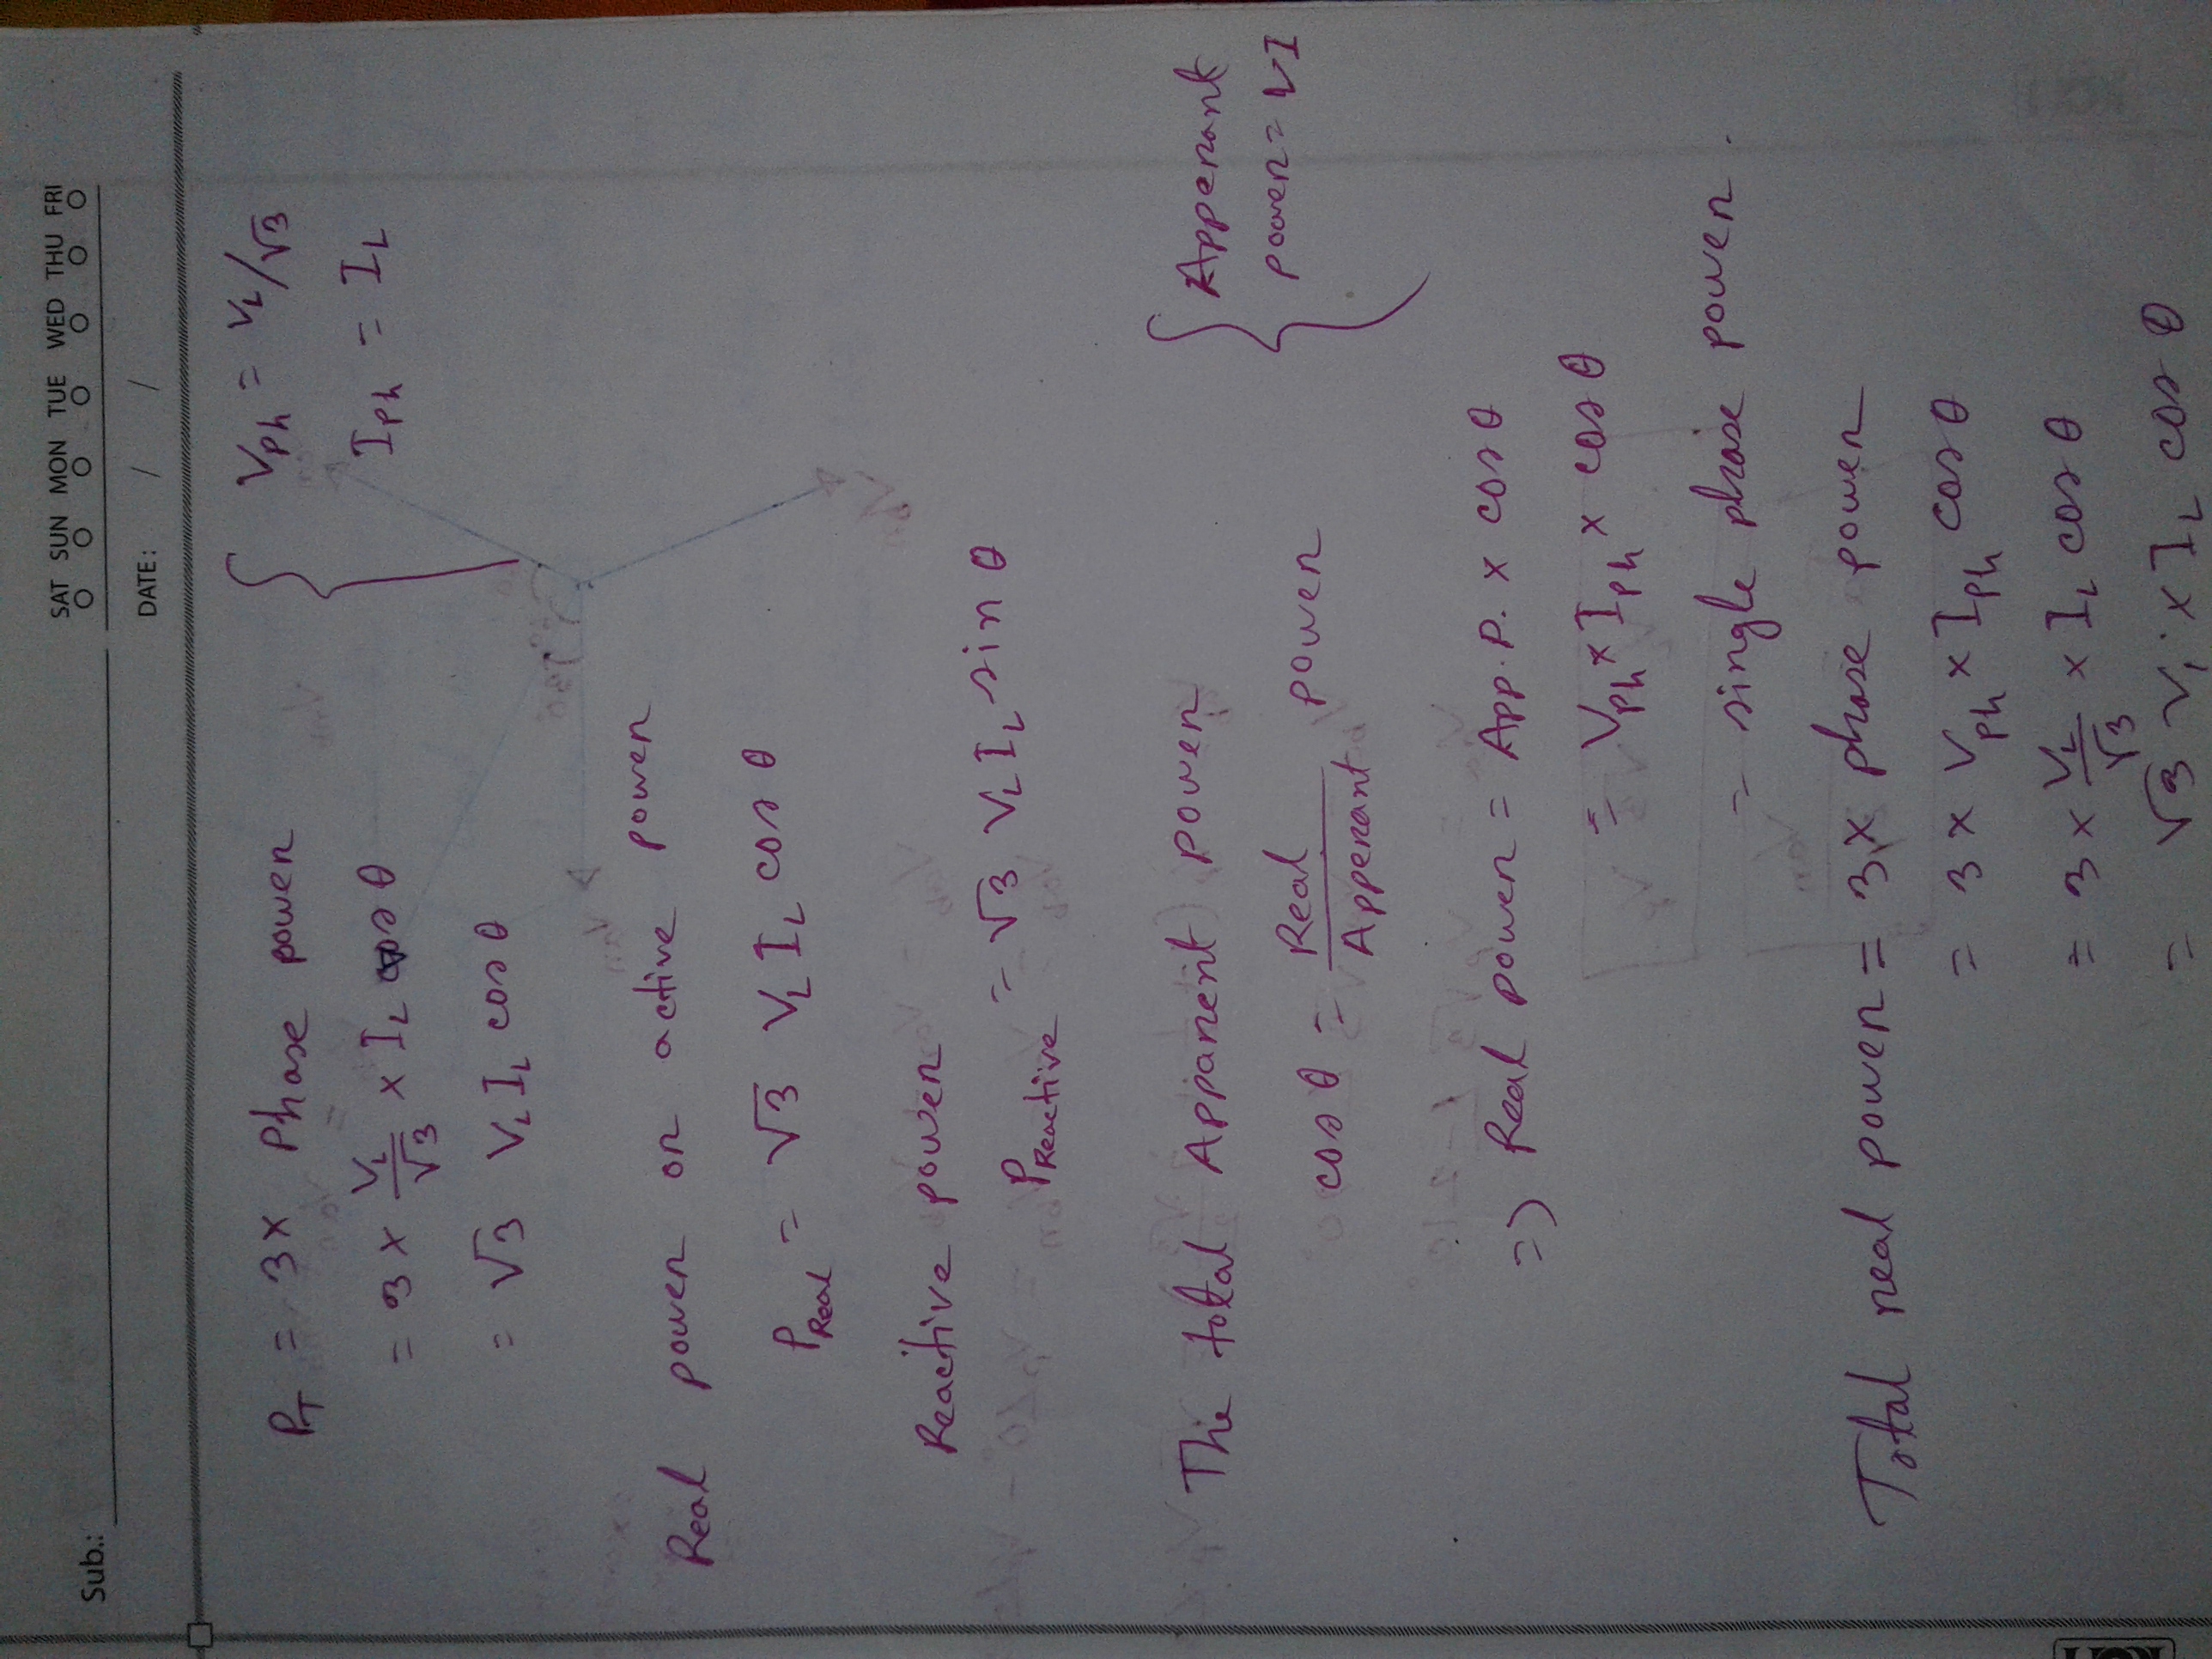 Sub.:
SAT SUN MON TUE WED THU FRI
DATE: / /
P_T = 3 × Phase power
= 3 × V_L/√3 × I_L cos θ
= √3 V_L I_L cos θ
{ V_Ph = V_L/√3
I_Ph = I_L
Real power or active power
P_Real = √3 V_L I_L cos θ
Reactive power
P_Reactive = √3 V_L I_L sin θ
The total Apparent power
cos θ = Real/Apperant power
{ Apperant
power = VI
=> Real power = App. P. × cos θ
= V_Ph × I_Ph × cos θ
= single phase power.
Total real power = 3 × phase power
= 3 × V_Ph × I_Ph cos θ
= 3 × V_L/√3 × I_L cos θ
= √3 V_L × I_L cos θ